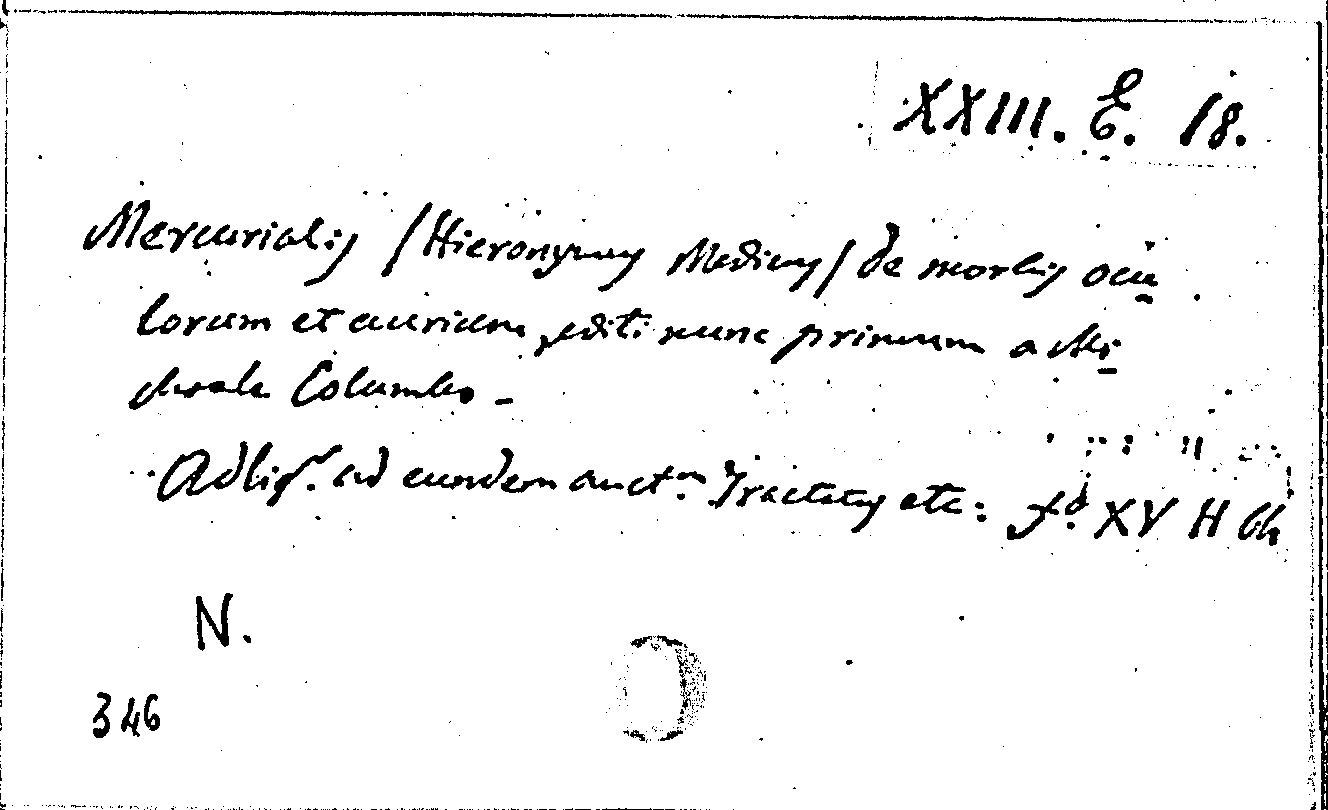 XXIII. E. 18.
Mercurialis /Hieronymus Medicus/ de morbis ocu
lorum et aurium, editi nunc primum a Mi
chaele Columbo -
Adlig. ad eundem auct. Tractatus etc: XV H
N.
346